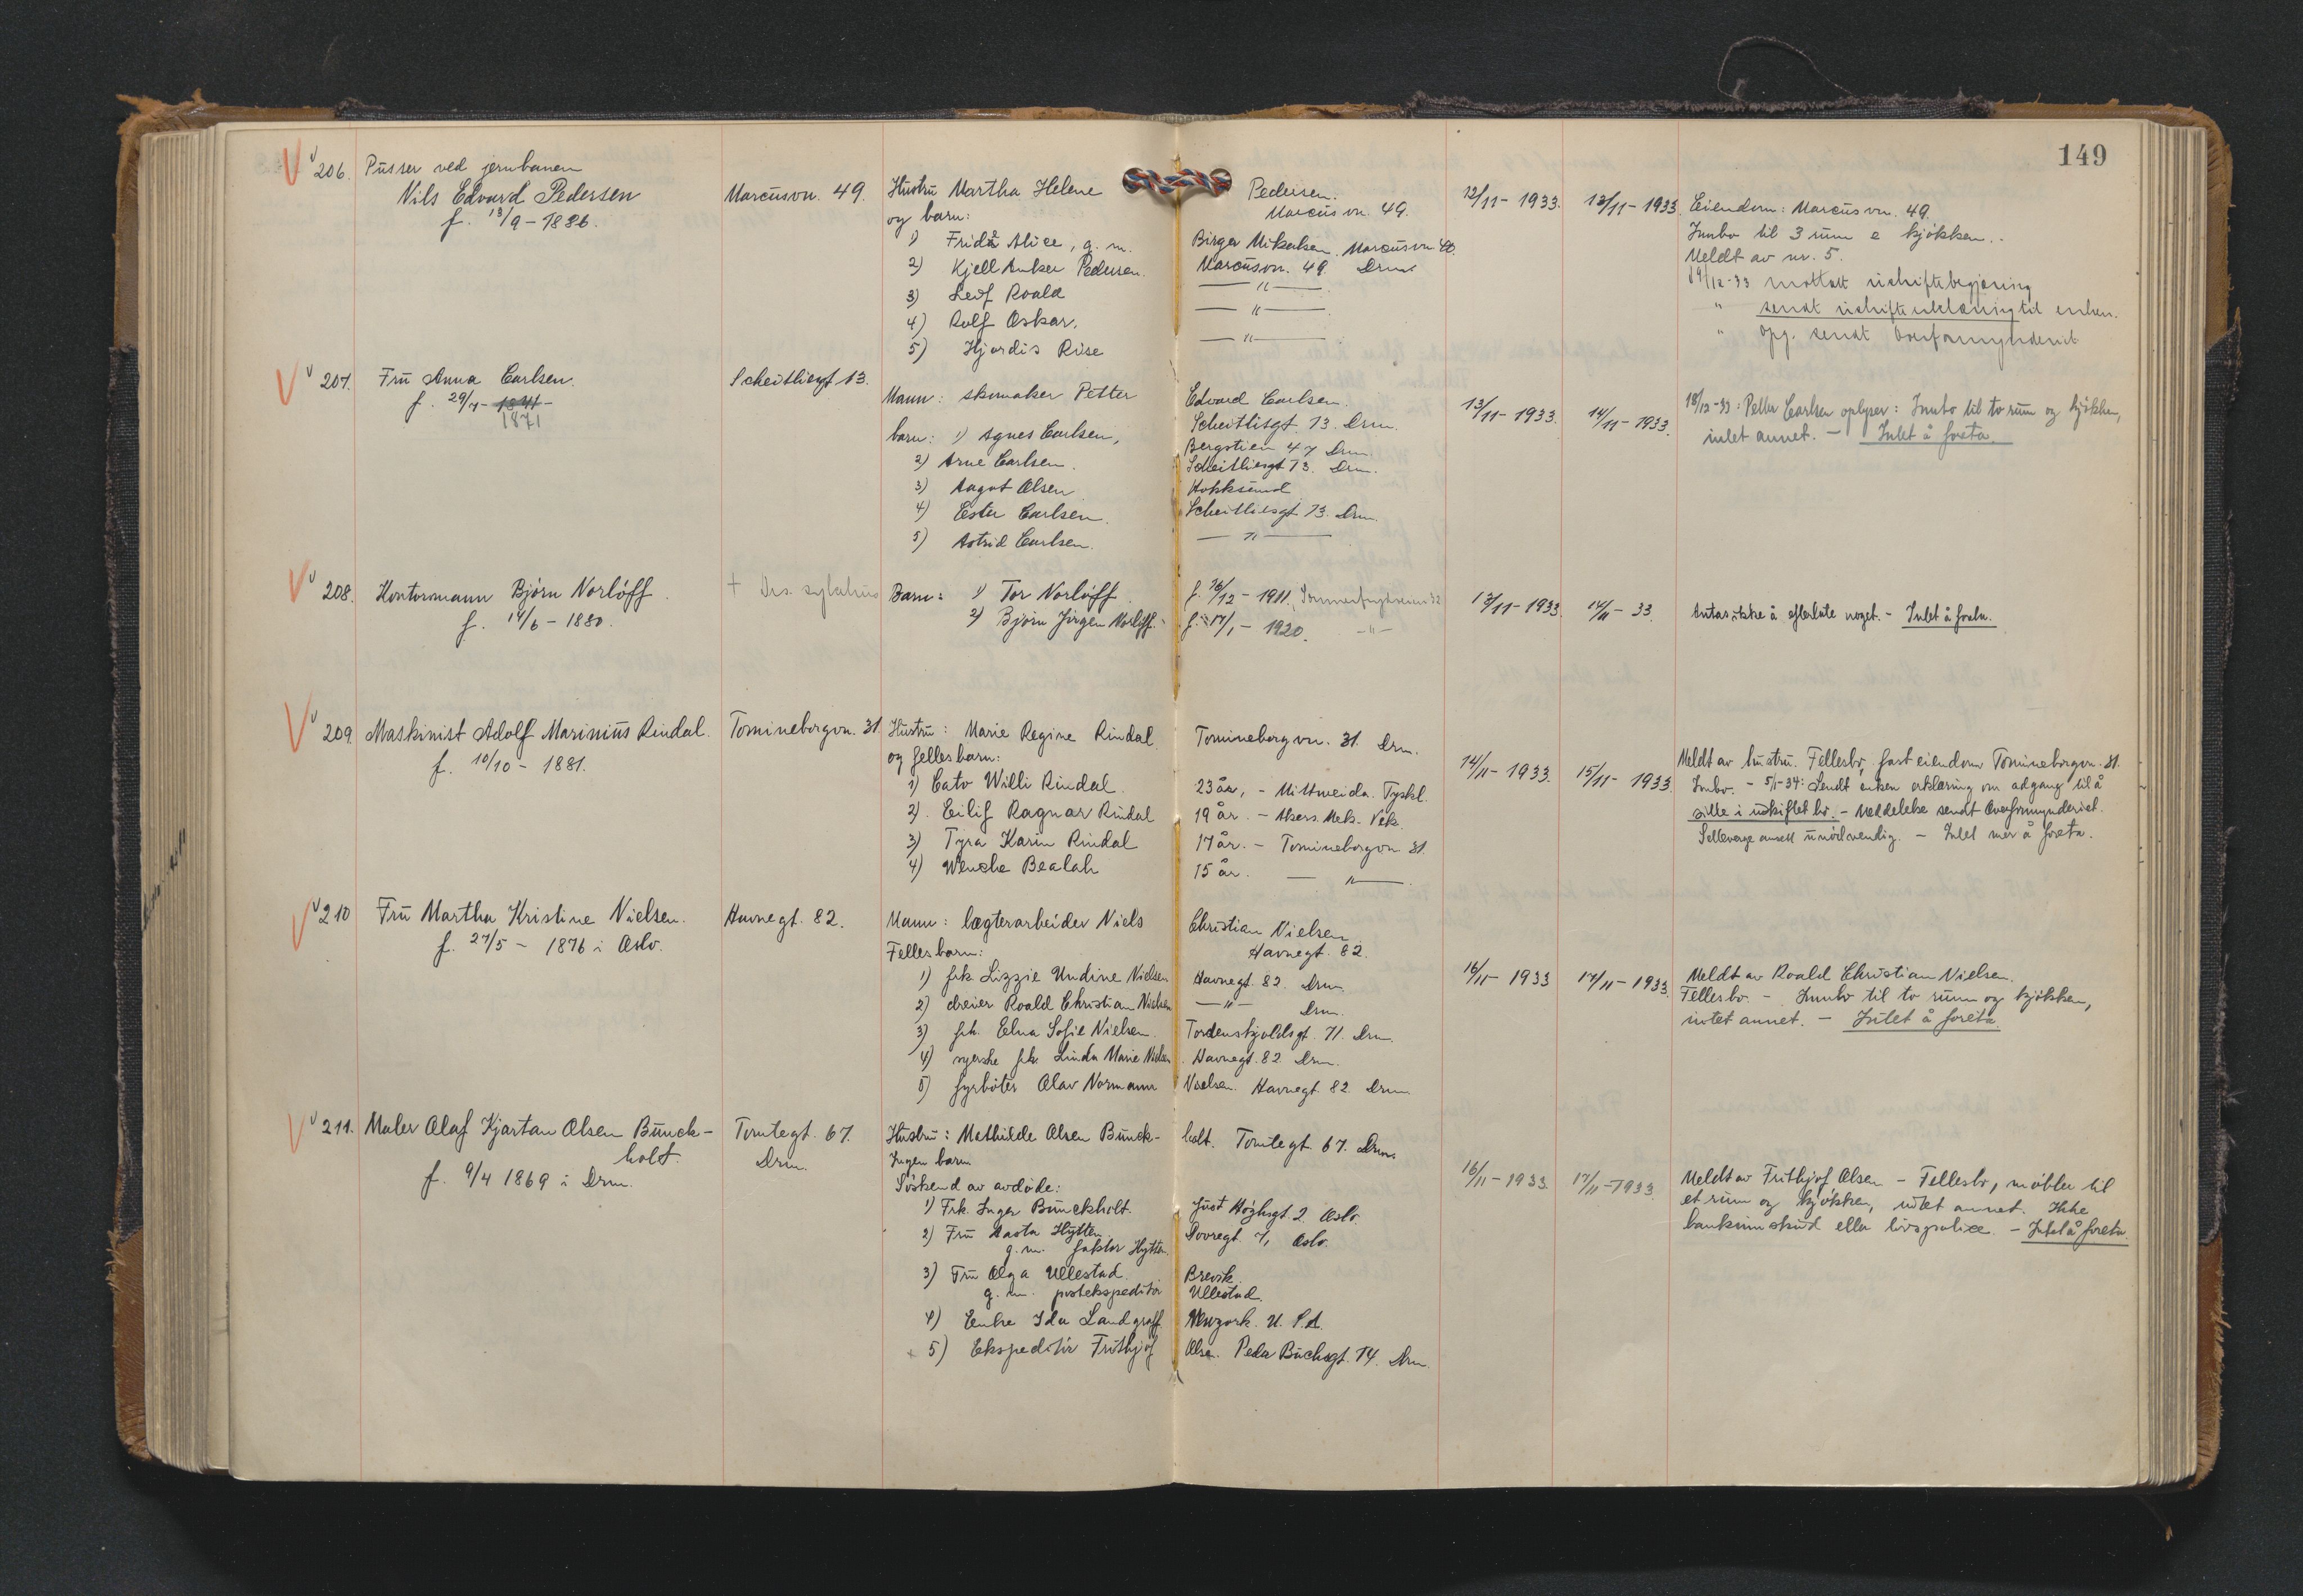 149
206. Pusser ved jernbanen
Nils Edvard Pedersen
f. 13/9 - 1886.
Marcusvn. 49.
Hustru Martha Helene Pedersen.
Marcusvn. 49.
og barn:
1) Frida Alice, g. m. Birger Mikelsen, Marcusvn.
2) Kjell Anker Pedersen. Marcusvn. 49. Drm.
3) Leif Roald — " —
4) Rolf Oskar. — " —
5) Hjørdis Rise — " —
12/11 - 1933. 13/11 - 1933.
Eiendom: Marcusvn. 49.
Innbo til 3 rum e kjøkken.
Meldt av nr. 5.
19/12-33 mottatt uskiftebegjæring
" sendt uskifteerklæring til enken.
" opg. sendt Overformynderiet
207. Fru Anna Carlsen.
f. 29/7 - 1841 -
1871
Scheitliesgt 13.
Mann: skomaker Petter Edvard Carlsen.
Scheitlisgt. 13. Drm.
barn: 1) Agnes Carlsen, Bergstien 47 Drm.
2) Arne Carlsen. Scheitliesgt 13. Drm.
3) Aagot Olsen Hokksund
4) Ester Carlsen. Scheitliesgt 13. Drm.
5) Astrid Carlsen. — " —
13/11 - 1933. 14/11 - 1933.
18/12-33: Petter Carlsen oplyser: Innbo til to rum og kjøkken,
intet annet. - Intet å foreta.
208. Kontormann Bjørn Norløff.
f. 14/6 - 1880.
+ Drs. sykehus
Barn: 1) Tor Norløff. f. 16/12 - 1911.
2) Bjørn Jørgen Norløff. f. 17/1 - 1920. - " -
13/11 - 1933. 14/11 - 33.
Antas ikke å efterlate noget. - Intet å foreta.
209. Maskinist Adolf Marinius Rindal.
f. 10/10 - 1881.
Tomineborgvn. 31.
Hustru: Marie Regine Rindal. Tomineborgvn. 31. Drm.
og fellesbarn:
1) Cato Willi Rindal. 23 år, - Mittweida. Tyskl.
2). Eilif Ragnar Rindal 19 år. - Akers Mek. Verk.
3) Tyra Karin Rindal 17 år. - Tomineborgvn. 31.
4) Wenche Bealah 15 år. — " —
14/11 - 1933. 15/11 - 1933.
Meldt av hustru. Fellesbo, fast eiendom Tomineborgvn. 31.
Innbo. - 5/1-34: Sendt enken erklæring om adgang til å
sitte i uskiftet bo. - Meddelelse sendt Overformynderiet.
Setteverge ansett unødvendig. - Intet mer å foreta.
210 Fru Martha Kristine Nielsen.
f. 27/5 - 1876 i Oslo.
Havnegt. 82.
Mann: lægterarbeider Niels Christian Nielsen
Havnegt. 82.
Fellesbarn:
1) frk. Lizzie Undine Nielsen Havnegt. 82. Drm.
2) dreier Roald Christian Nielsen — " — Drm.
3) frk. Edna Sofie Nielsen. Tordenskjoldsgt. 71. Drm.
4) syerske frk. Linda Marie Nielsen. Havnegt. 82. Drm.
5) fyrbøter Olav Normann Nielsen. Havnegt. 82. Drm.
16/11 - 1933 17/11 - 1933.
Meldt av Roald Christian Nielsen.
Fellesbo. - Innbo til to rum og kjøkken,
intet annet. - Intet å foreta.
211. Maler Olaf Kjartan Olsen Bunck-
holt.
f. 9/4 1869 i Drm.
Tomtegt. 67.
Drm.
Hustru: Mathilde Olsen Bunck- holt. Tomtegt. 67. Drm.
Ingen barn
Søskend av avdøde:
1) Frk. Inger Bunckholt. Just Høghsgt. 2. Oslo.
2) Fru Aasta Hytten, Dovregt 7, Oslo.
g. m. faktor Hytten.
3) Fru Olga Ullestad. Brevik.
g. m. postekspeditør Ullestad.
4) Enke Ida Landgraff Newyork. U. S. A.
5) Ekspeditør Frithjof Olsen. Peder Buchsgt. 14. Drm.
16/11 - 1933. 17/11 - 1933.
Meldt av Frithjof Olsen - Fellesbo, møbler til
et rum og kjøkken, intet annet. Ikke
bankinnskud eller livspolice. - Intet å foreta.